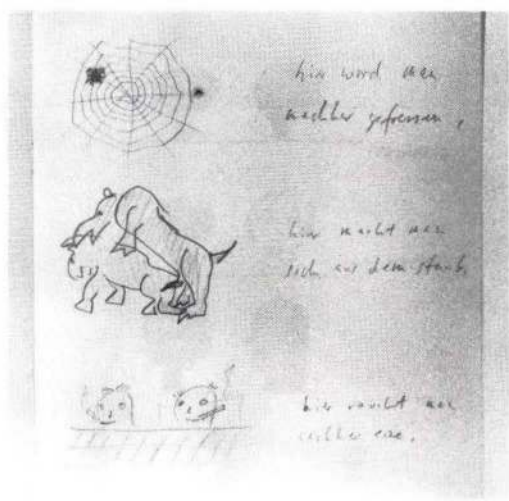 hier wird man
nachher gefressen,
hier macht man
sich aus dem staub,
hier raucht man
nachher eine.